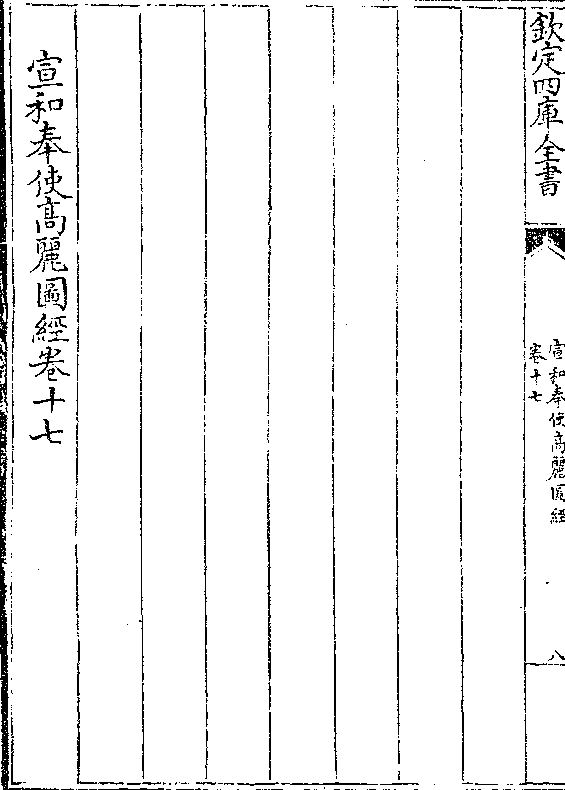 欽定四庫全書
宣和奉使髙麗圖經
卷十七
八
宣和奉使髙麗圖經卷十七